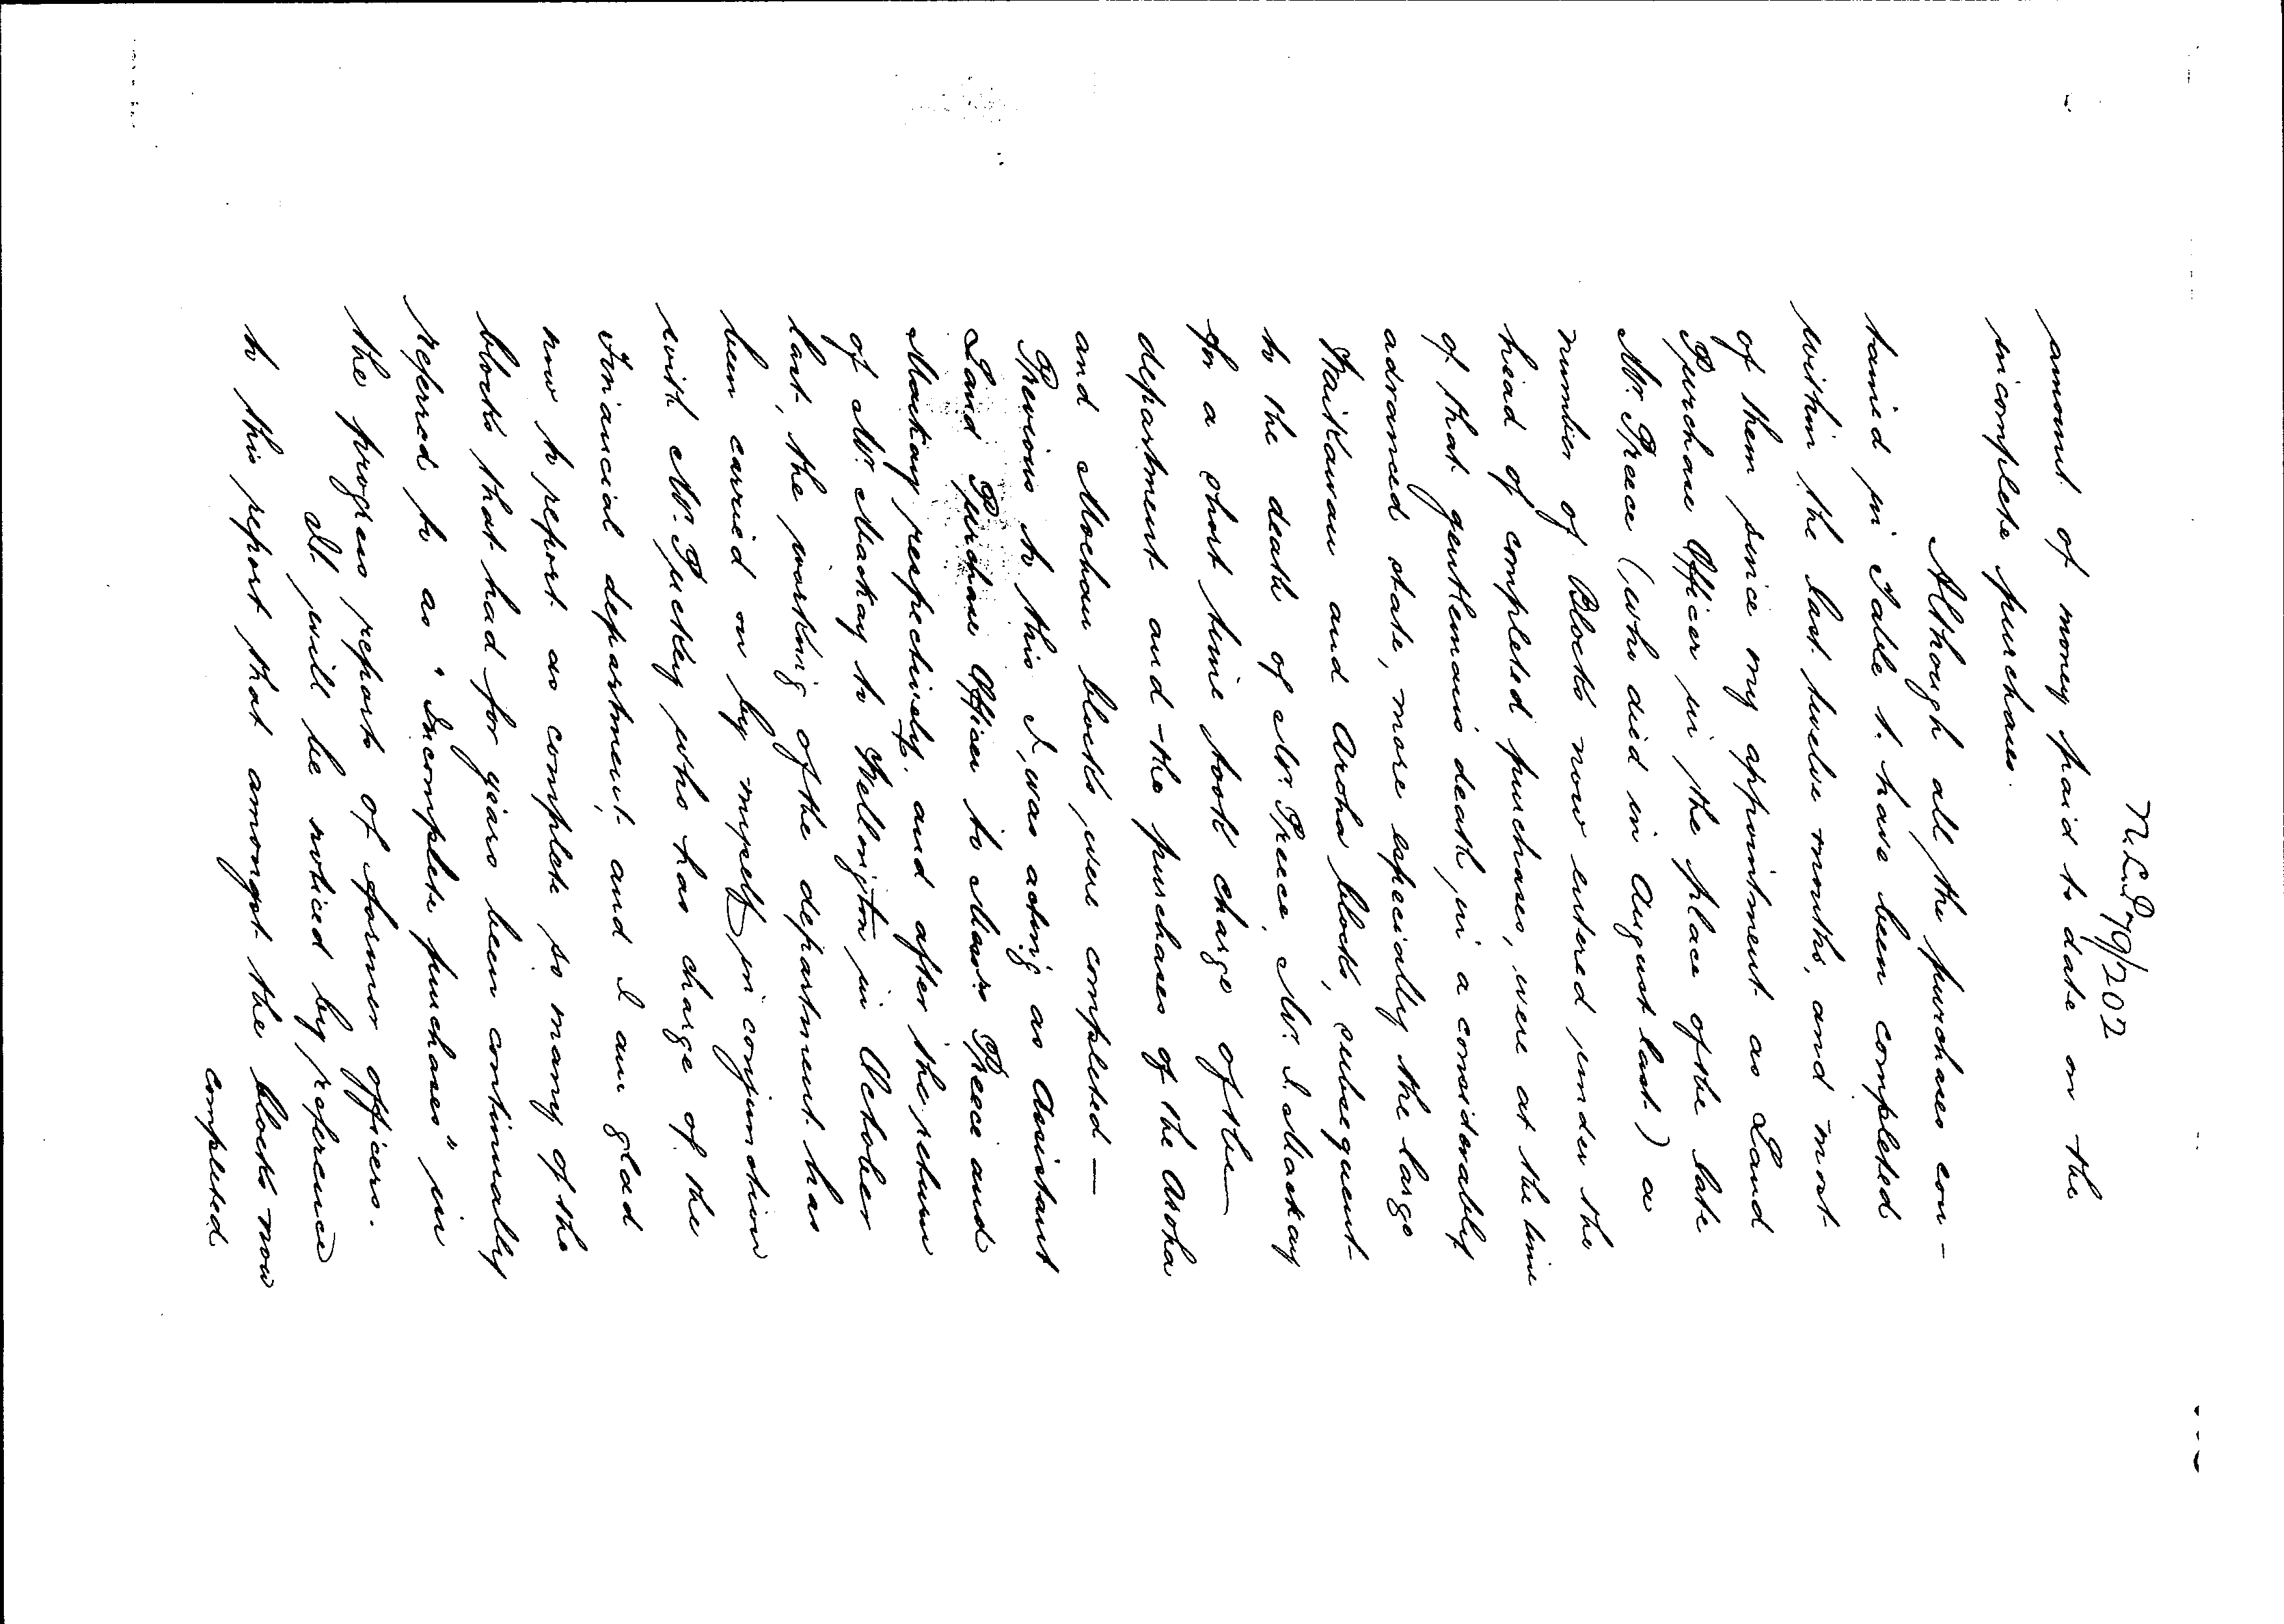 N.L.P. 79/202
amount of money paid to date on the
incomplete purchases.
Although all the purchases con-
tained in Table 1. have been completed
within the last twelve months, and most
of them since my appointment as Land
Purchase Officer in the place of the late
Mr. Preece (who died in August last) a
number of Blocks now entered under the
head of completed purchases, were at the time
of that gentleman's death, in a considerably
advanced state, more especially the large
Waikawau and Aroha blocks, subsequent
to the death of Mr. Preece, Mr. J. Mackay
for a short time took charge of the
department and the purchases of the Aroha
and Moehau blocks, were completed —
Previous to this I, was acting as Assistant
Land Purchase Officer to Messrs Preece and
Mackay respectively. and after the return
of Mr. Mackay to Wellington in October
last, the working of the department has
been carried on by myself, in conjunction
with Mr. Puckey who has charge of the
Financial department, and I am glad
now to report as complete so many of the
blocks that had for years been continually
referred to as "Incomplete purchases" in
the progress reports of former officers.
It will be noticed by reference
to this report that amongst the blocks now
completed